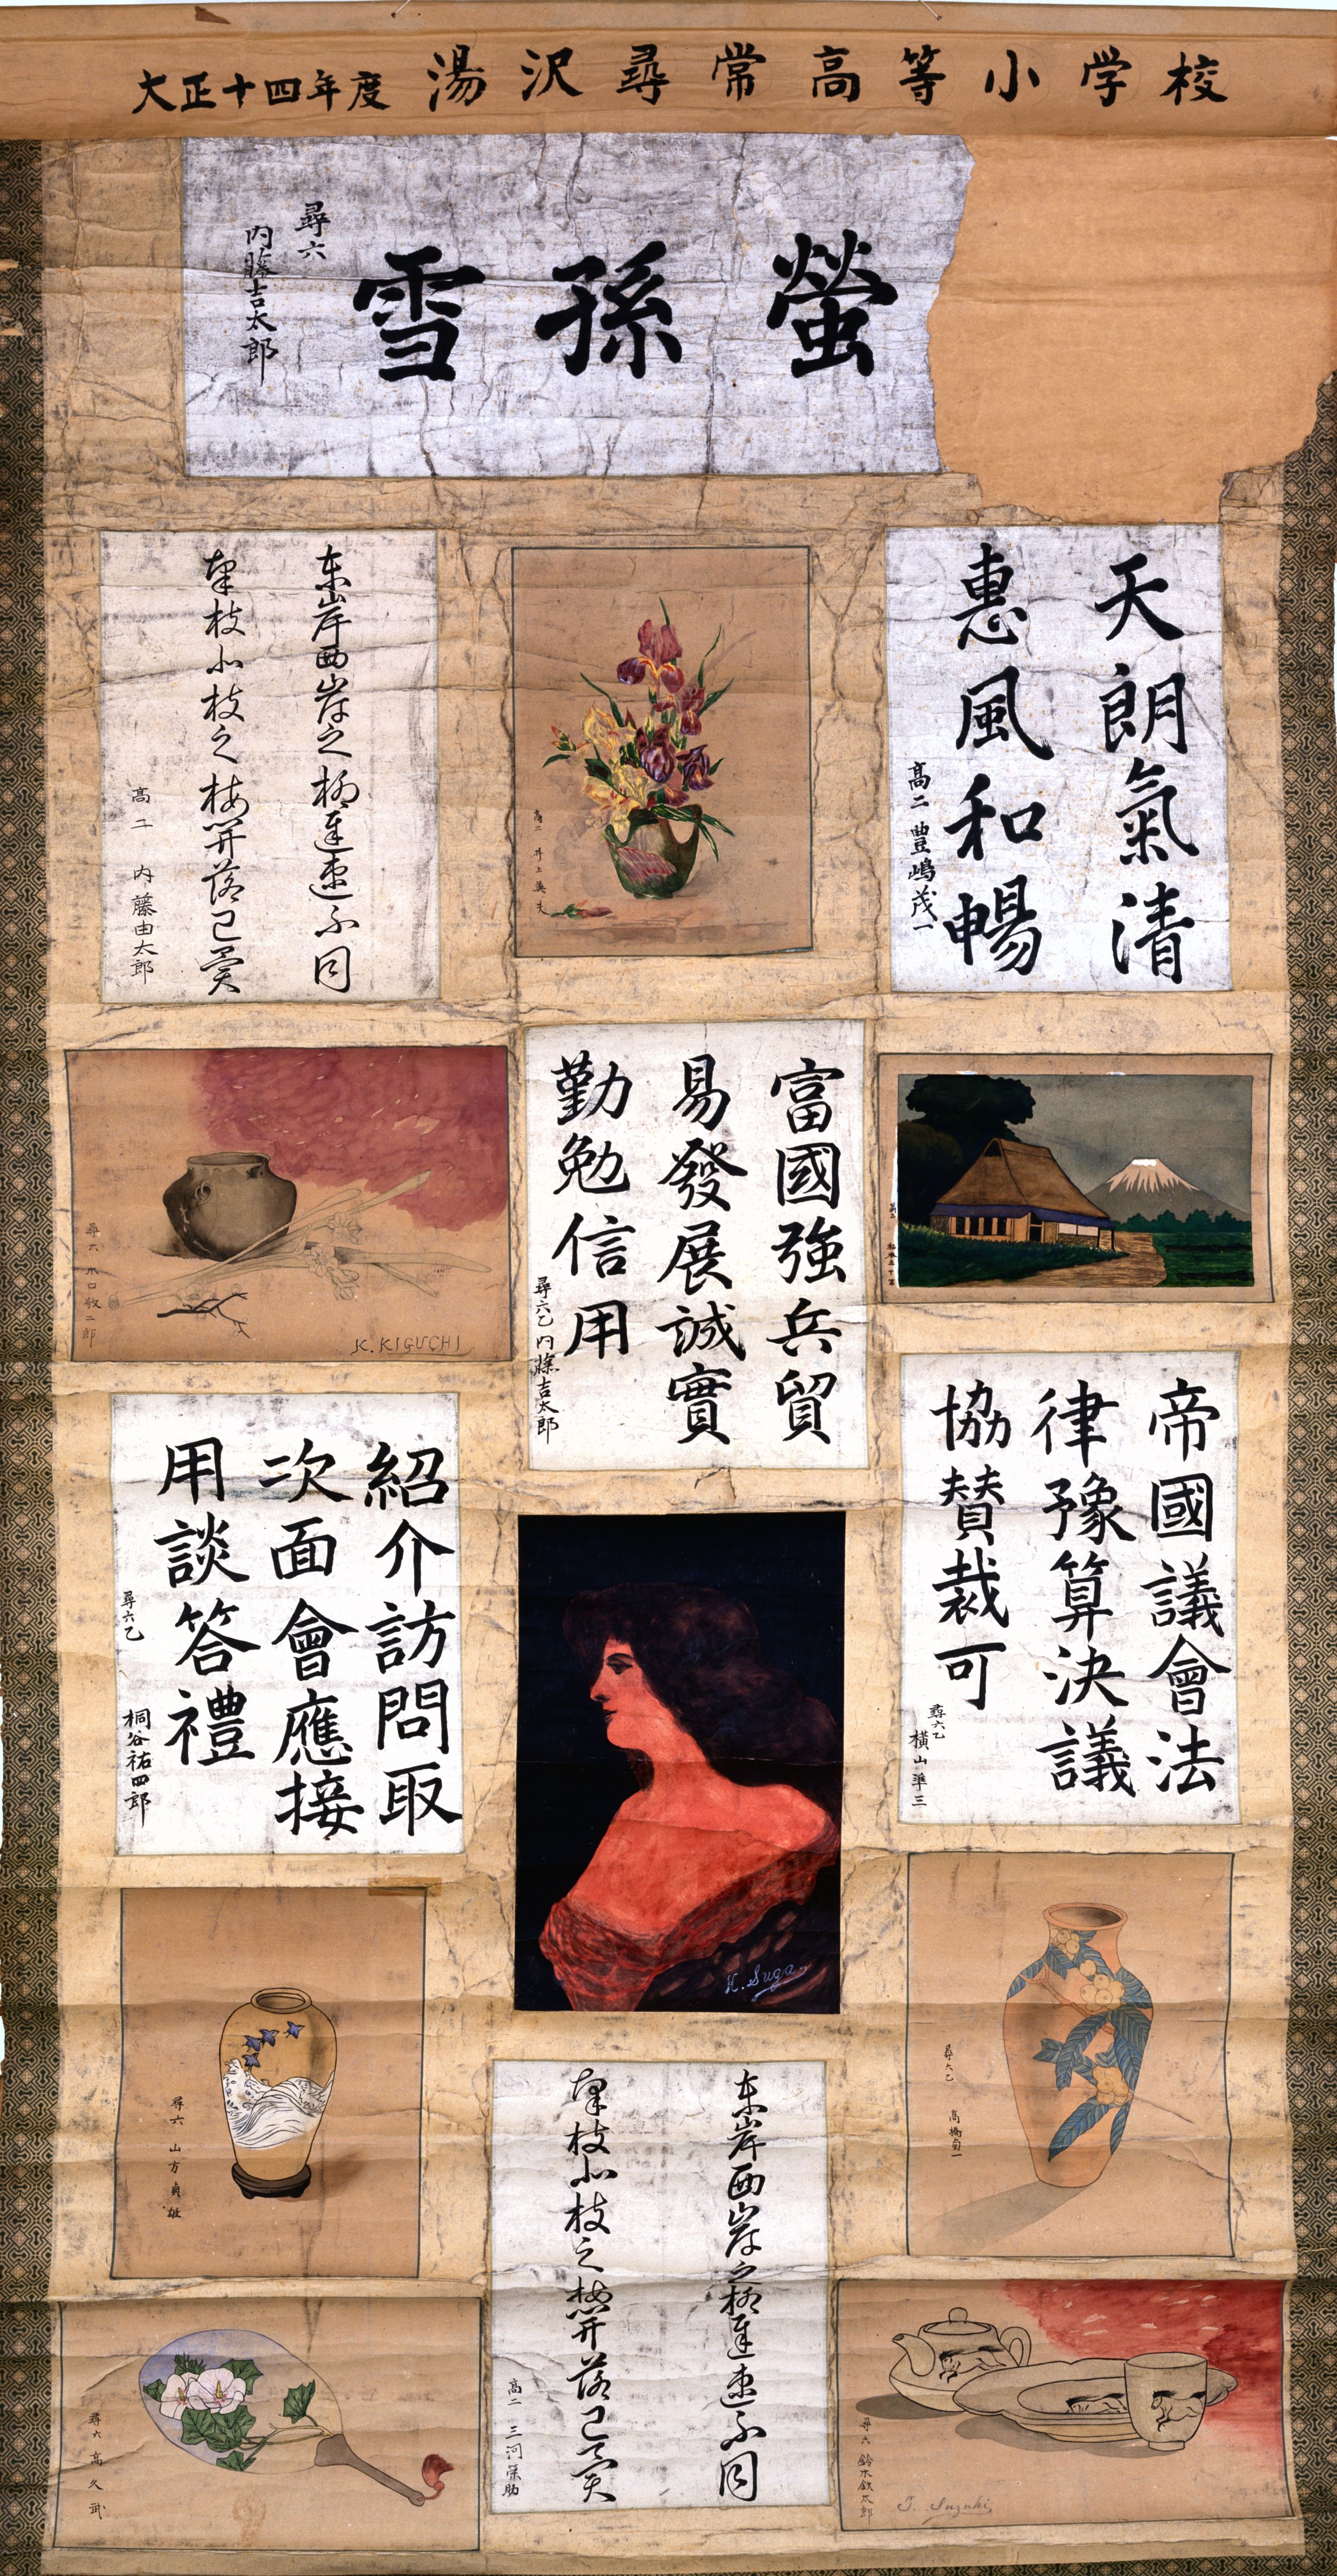 大正十四年度 湯沢尋常高等小学校
螢孫雪
尋六
内藤吉太郎
天朗氣清
惠風和暢
高二 豊嶋茂一
高二 井上
东岸西岸之柳遅速不同
南枝北枝之梅開落已異
高二 内藤由太郎
高二
富國強兵貿
易發展誠實
勤勉信用
尋六乙 内藤吉太郎
尋六 木口敬二郎
K. KIGUCHI
帝國議會法
律豫算決議
協賛裁可
尋六乙
横山準三
紹介訪問取
次面會應接
用談答禮
尋六乙 桐谷祐四郎
H. Suga.
尋六乙 高橋貞一
尋六 山方貞雄
东岸西岸之柳遅速不同
南枝北枝之梅開落已異
高二 三河策助
尋六 鈴木鉄太郎
T. Suzuki
尋六 高久武